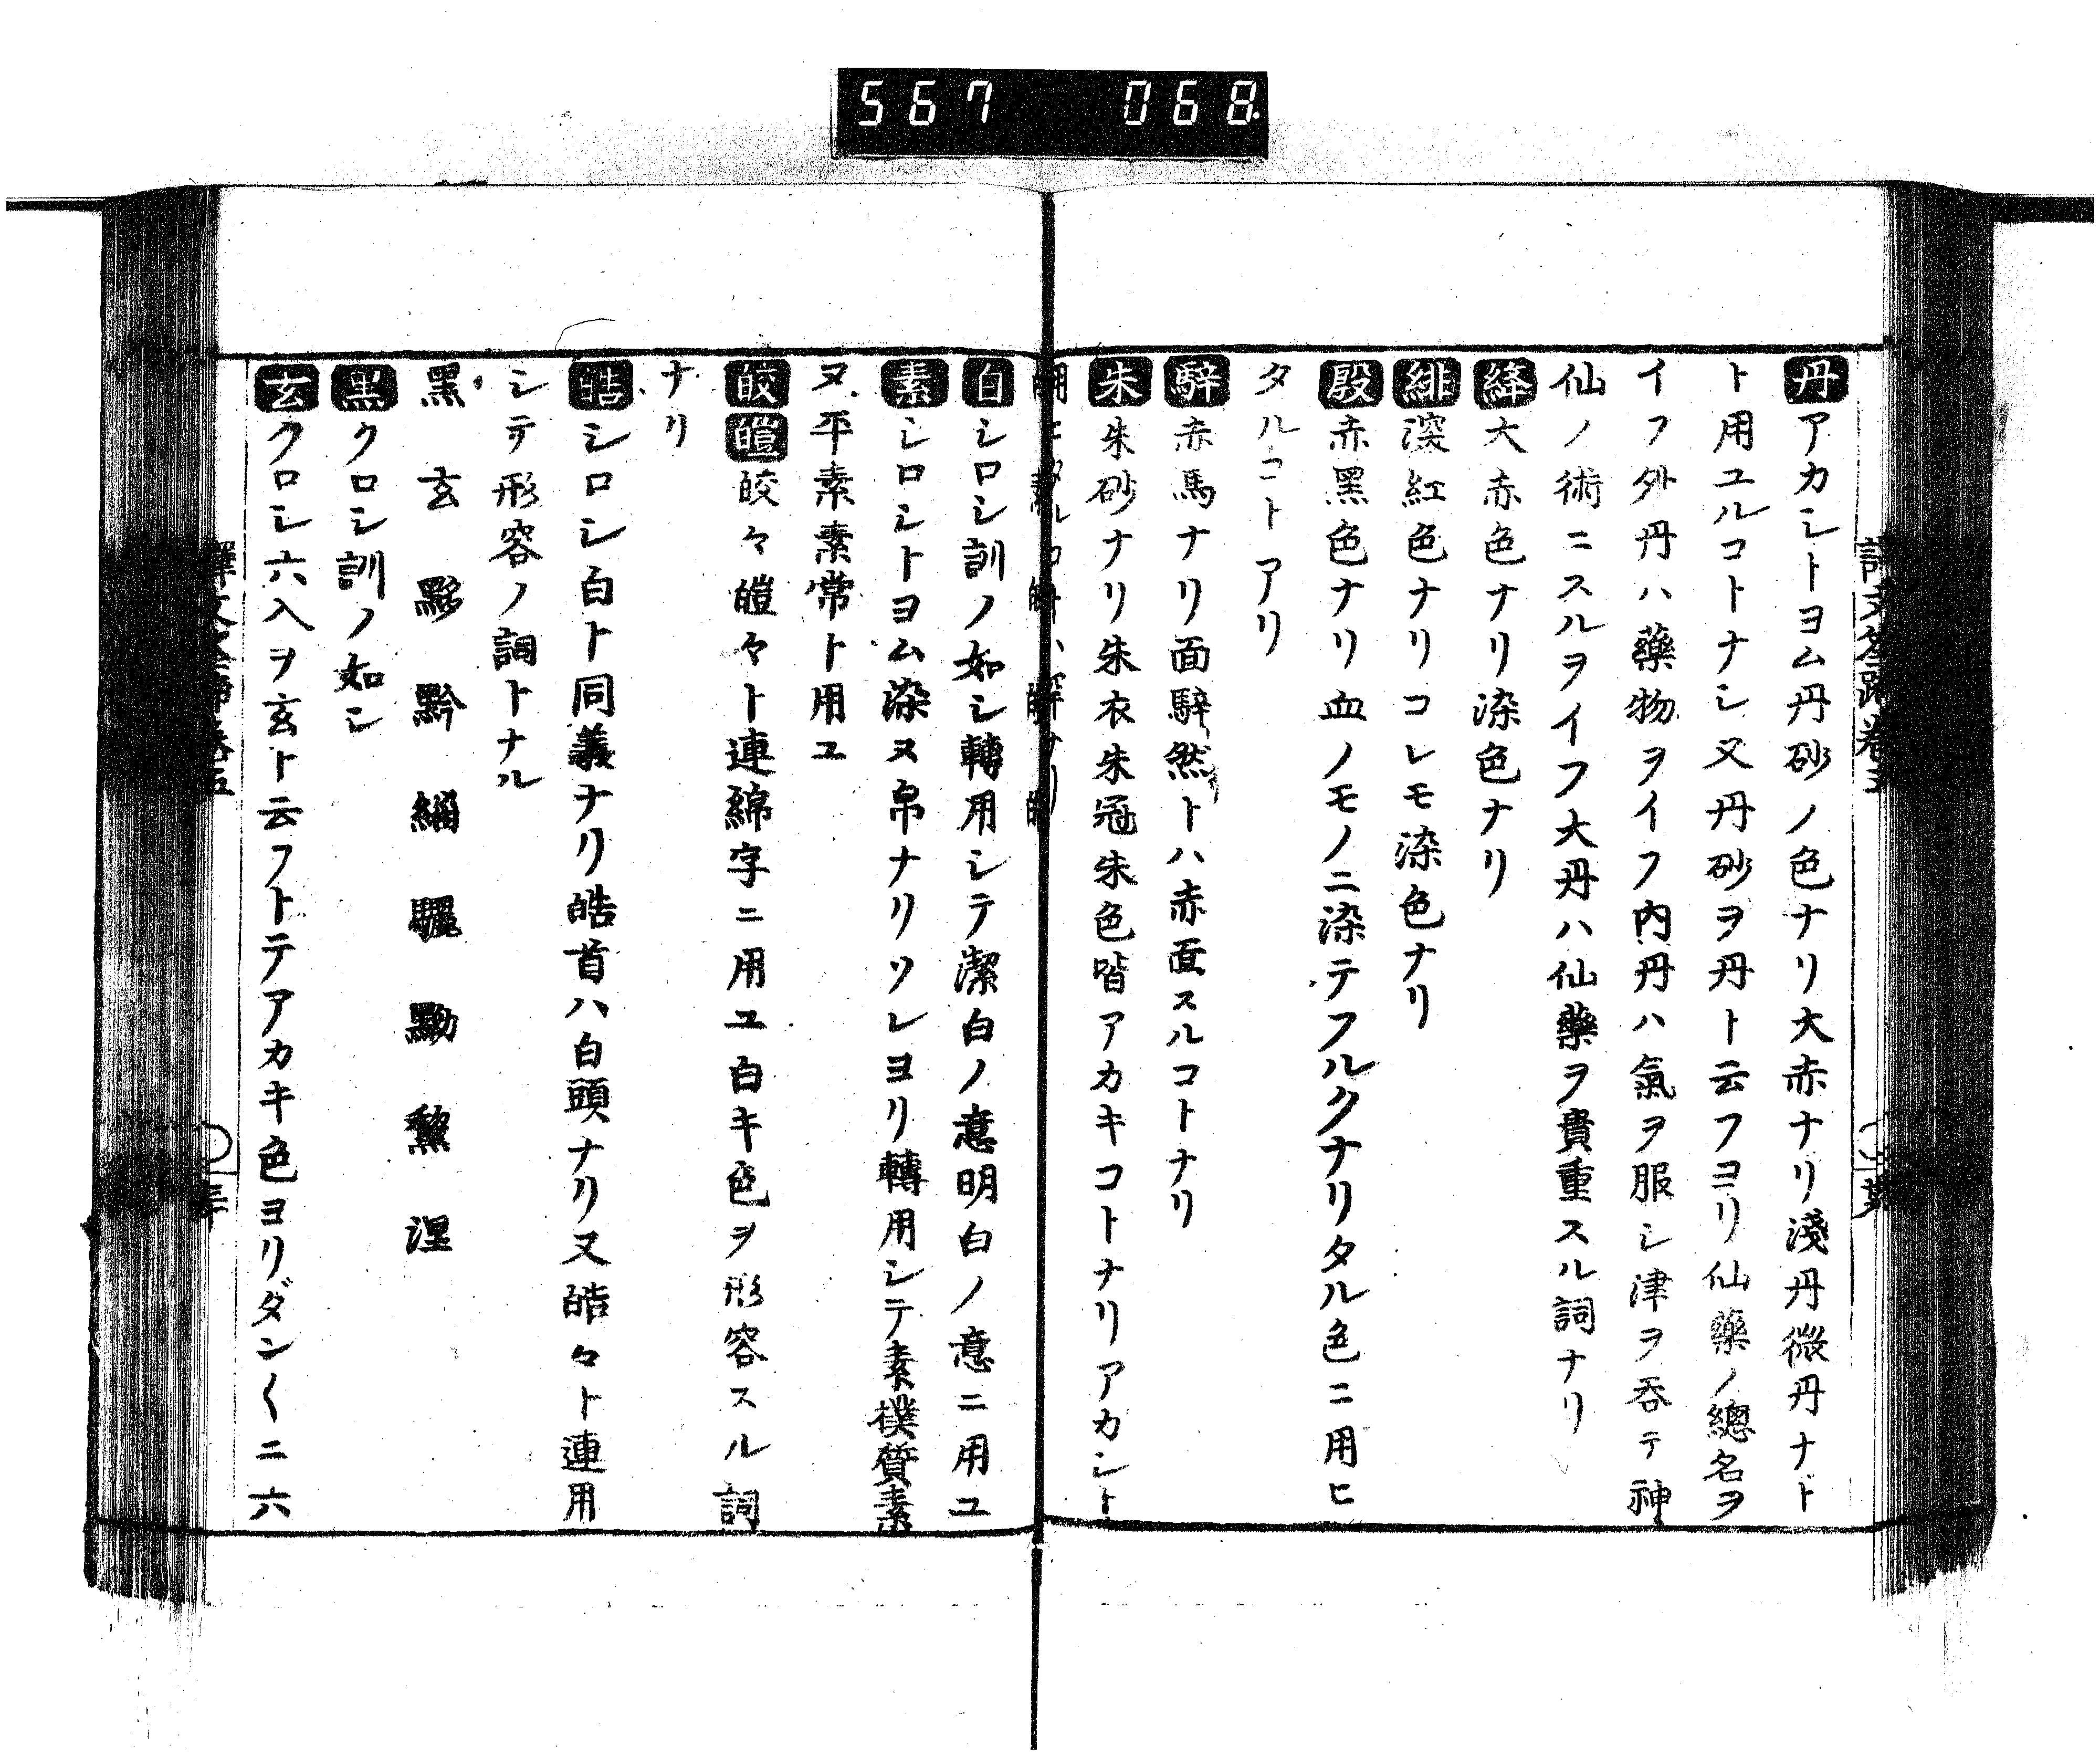 567 068
丹アカシトヨム丹砂ノ色ナリ大赤ナリ淺丹微丹ナド
ト用ユルコトナシ又丹砂ヲ丹ト云フヨリ仙藥ノ總名ヲ
イフ外丹ハ藥物ヲイフ內丹ハ氣ヲ服シ津ヲ吞テ神
仙ノ術ニスルヲイフ大丹ハ仙藥ヲ貴重スル詞ナリ
絳大赤色ナリ染色ナリ
緋深紅色ナリコレモ染色ナリ
殷赤黑色ナリ血ノモノニ染テフルクナリタル色ニ用ヒ
タルコトアリ
騂赤馬ナリ面騂然トハ赤面スルコトナリ
朱朱砂ナリ朱衣朱冠朱色皆アカキコトナリアカシト
白シロシ訓ノ如シ轉用シテ潔白ノ意明白ノ意ニ用ユ
素シロシトヨム染ヌ帛ナリソレヨリ轉用シテ素樸質素
又平素素常ト用ユ
皎皚皎々皚々ト連綿字ニ用ユ白キ色ヲ形容スル詞
ナリ
皓シロシ白ト同義ナリ皓首ハ白頭ナリ又皓々ト連用
シテ形容ノ詞トナル
黑玄黟黔緇驪黝黧涅
黑クロシ訓ノ如シ
玄クロシ六入ヲ玄ト云フトテアカキ色ヨリダン〱ニ六